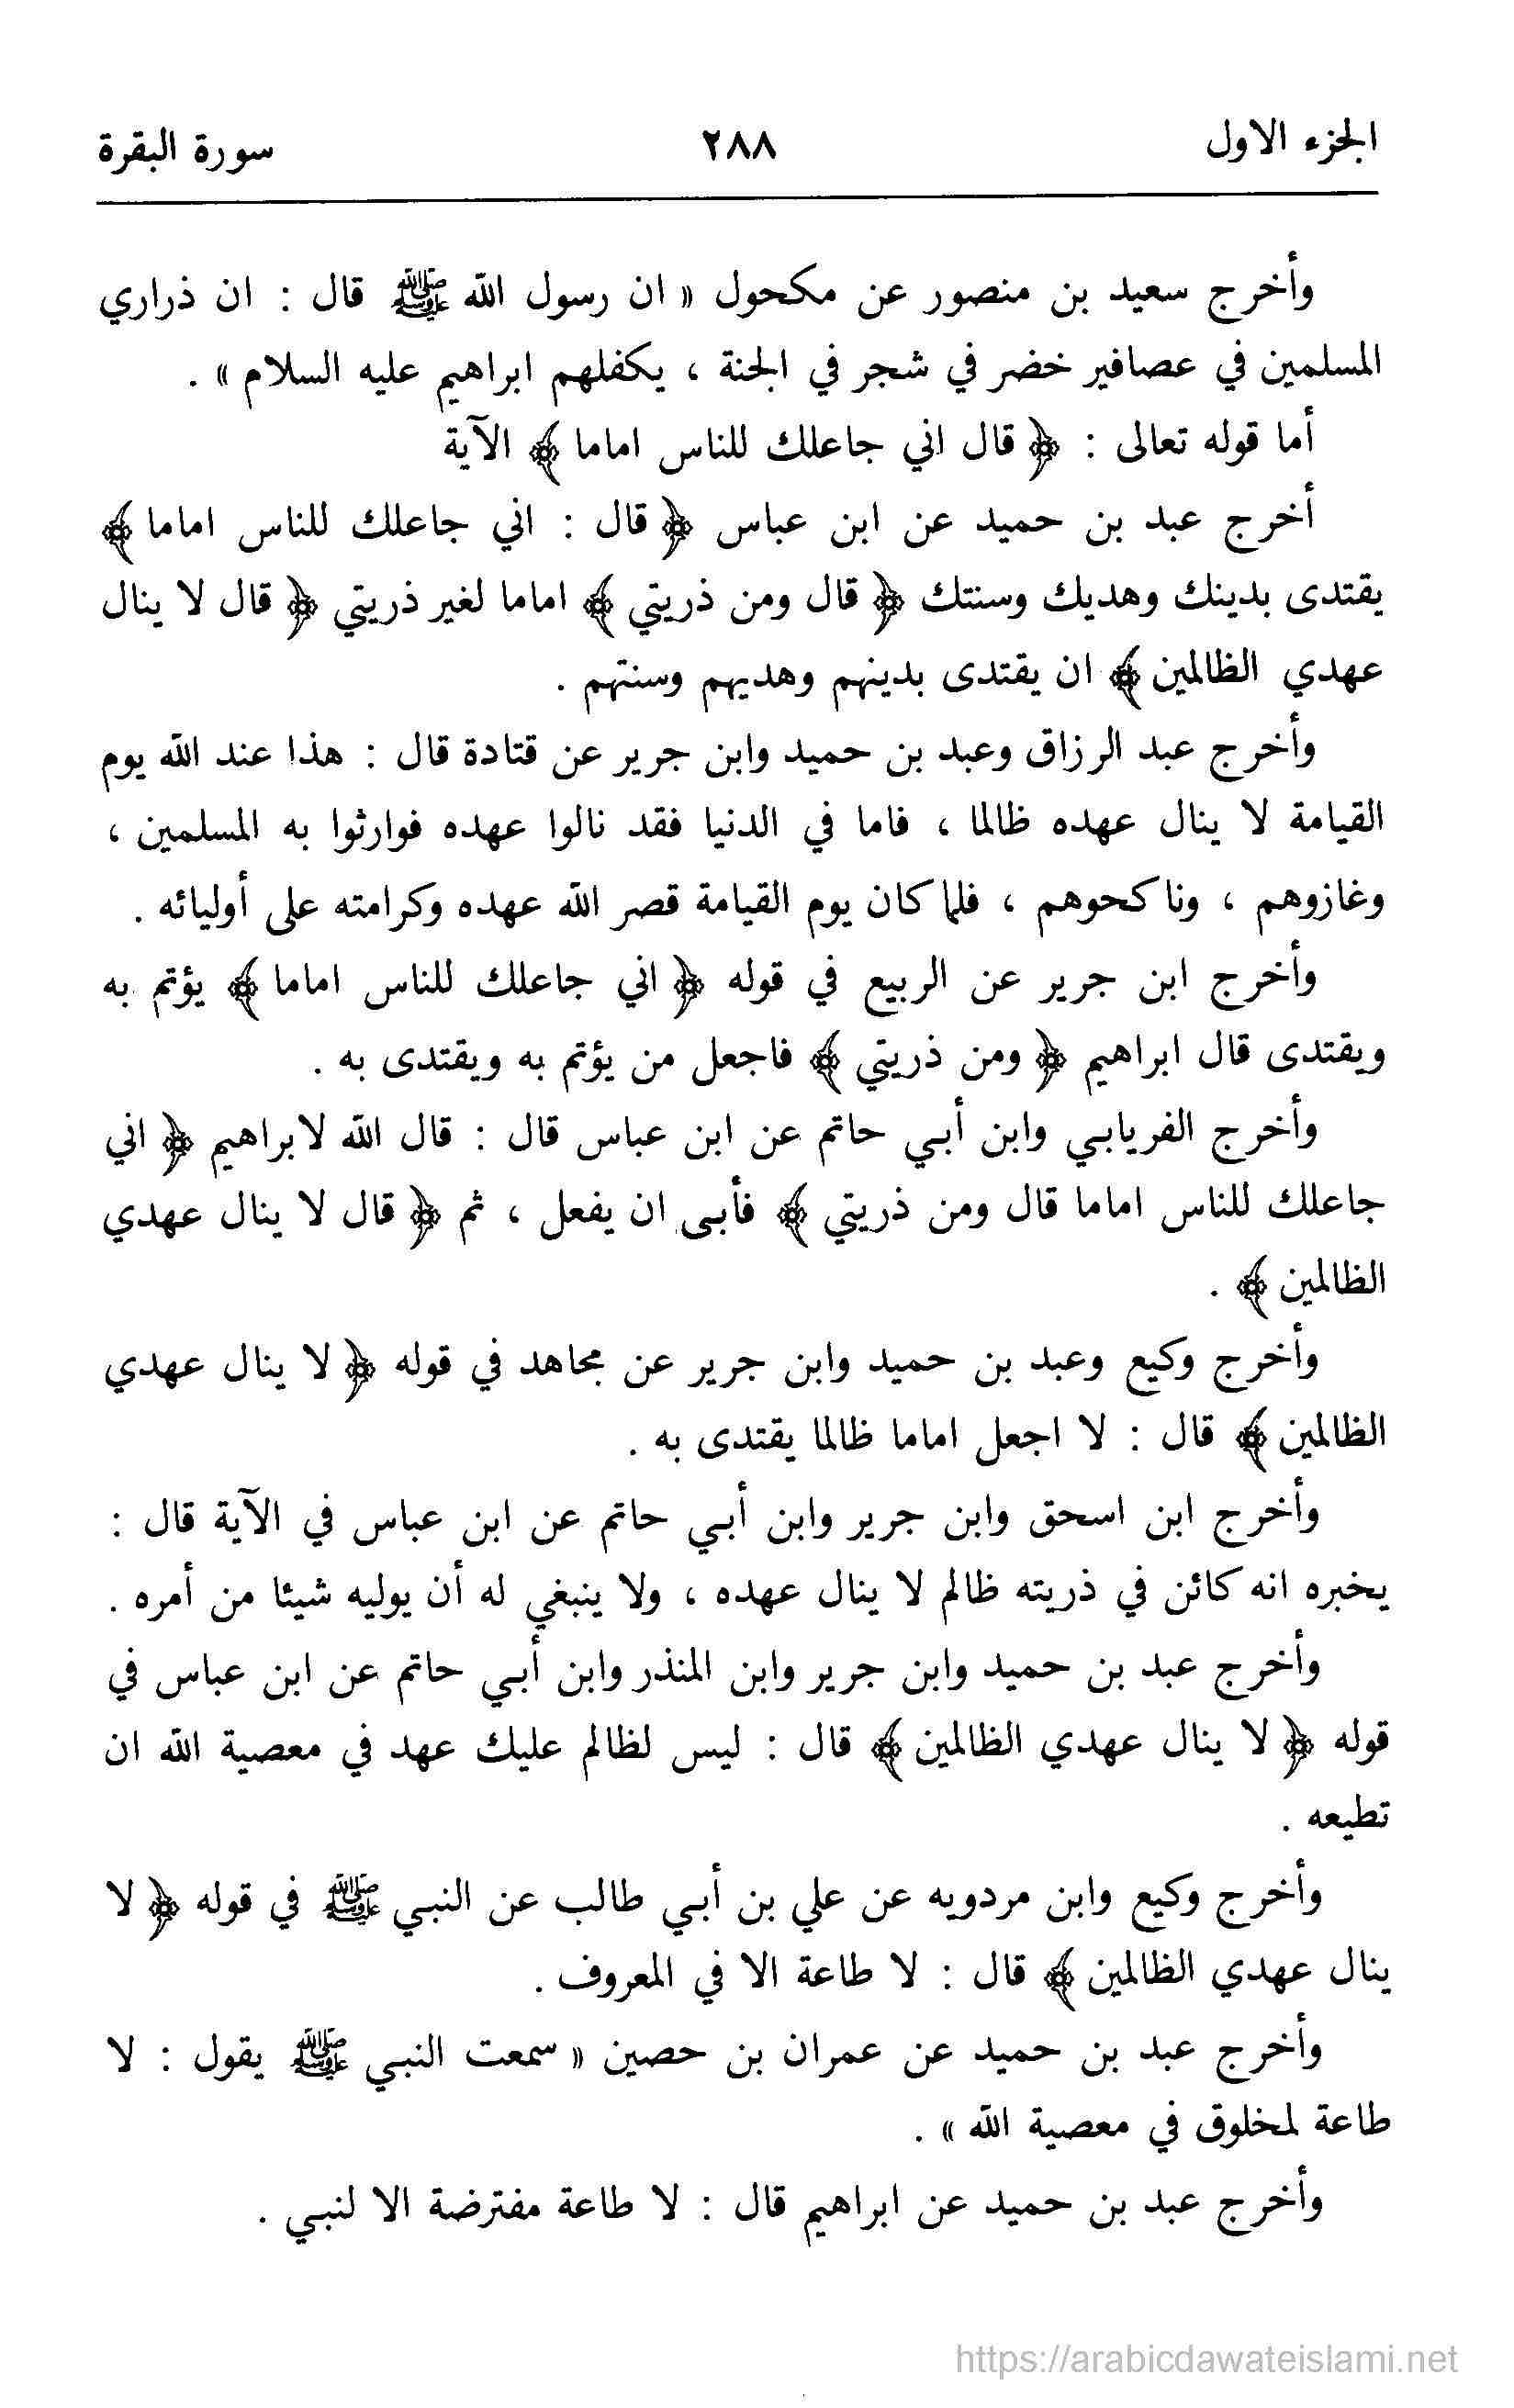 الجزء الاول ٢٨٨ سورة البقرة
وأخرج سعيد بن منصور عن مكحول « ان رسول الله ﷺ قال : ان ذراري
المسلمين في عصافير خضر في شجر في الجنة ، يكفلهم ابراهيم عليه السلام » .
أما قوله تعالى : ﴿ قال اني جاعلك للناس اماما ﴾ الآية
أخرج عبد بن حميد عن ابن عباس ﴿ قال : اني جاعلك للناس اماما ﴾
يقتدى بدينك وهديك وسنتك ﴿ قال ومن ذريتي ﴾ اماما لغير ذريتي ﴿ قال لا ينال
عهدي الظالمين ﴾ ان يقتدى بدينهم وهديهم وسنتهم .
وأخرج عبد الرزاق وعبد بن حميد وابن جرير عن قتادة قال : هذا عند الله يوم
القيامة لا ينال عهده ظالما ، فاما في الدنيا فقد نالوا عهده فوارثوا به المسلمين ،
وغازوهم ، وناكحوهم ، فلما كان يوم القيامة قصر الله عهده وكرامته على أوليائه .
وأخرج ابن جرير عن الربيع في قوله ﴿ اني جاعلك للناس اماما ﴾ يؤتم به
ويقتدى قال ابراهيم ﴿ ومن ذريتي ﴾ فاجعل من يؤتم به ويقتدى به .
وأخرج الفريابي وابن أبي حاتم عن ابن عباس قال : قال الله لابراهيم ﴿ اني
جاعلك للناس اماما قال ومن ذريتي ﴾ فأبى ان يفعل ، ثم ﴿ قال لا ينال عهدي
الظالمين ﴾ .
وأخرج وكيع وعبد بن حميد وابن جرير عن مجاهد في قوله ﴿ لا ينال عهدي
الظالمين ﴾ قال : لا اجعل اماما ظالما يقتدى به .
وأخرج ابن اسحق وابن جرير وابن أبي حاتم عن ابن عباس في الآية قال :
يخبره انه كائن في ذريته ظالم لا ينال عهده ، ولا ينبغي له أن يوليه شيئا من أمره .
وأخرج عبد بن حميد وابن جرير وابن المنذر وابن أبي حاتم عن ابن عباس في
قوله ﴿ لا ينال عهدي الظالمين ﴾ قال : ليس لظالم عليك عهد في معصية الله ان
تطيعه .
وأخرج وكيع وابن مردويه عن علي بن أبي طالب عن النبي ﷺ في قوله ﴿ لا
ينال عهدي الظالمين ﴾ قال : لا طاعة الا في المعروف .
وأخرج عبد بن حميد عن عمران بن حصين « سمعت النبي ﷺ يقول : لا
طاعة لمخلوق في معصية الله » .
وأخرج عبد بن حميد عن ابراهيم قال : لا طاعة مفترضة الا لنبي .
https://arabicdawateislami.net